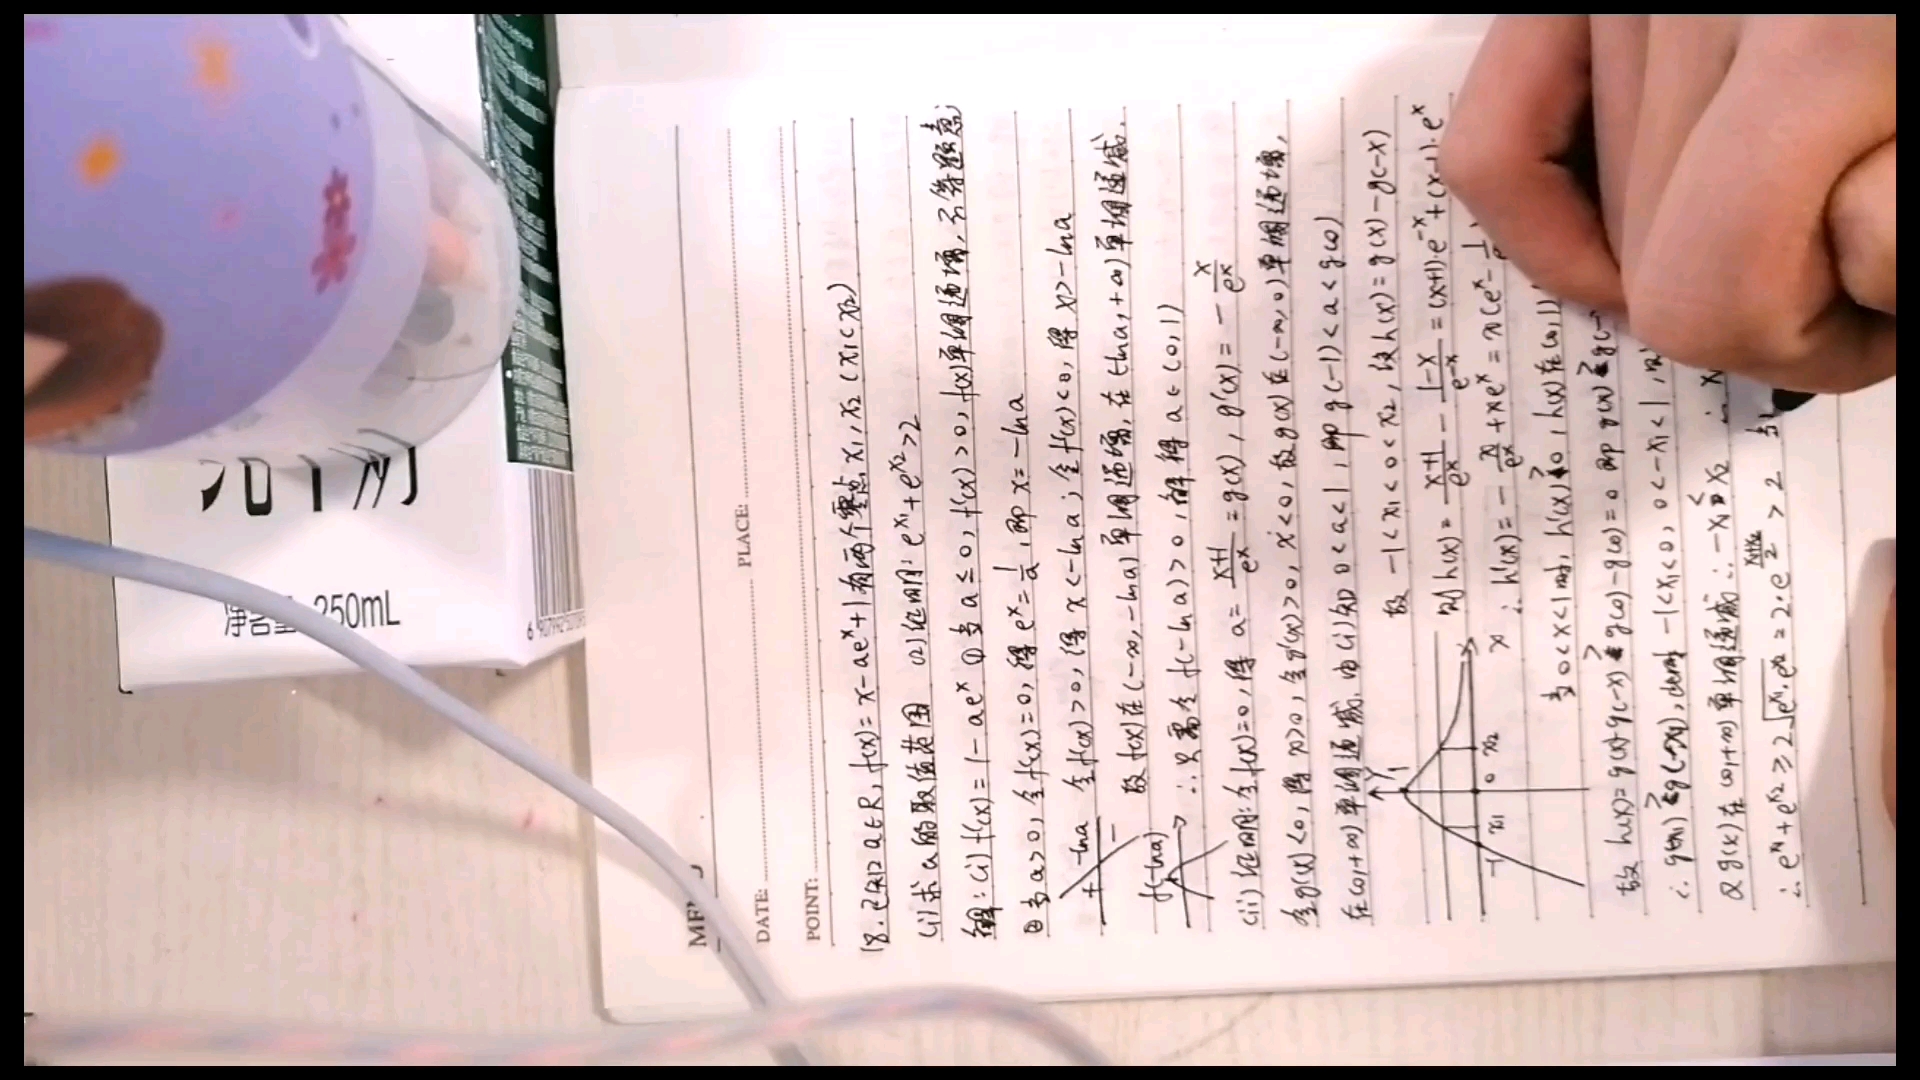 DATE:
PLACE:
POINT:
18.已知a∈R, f(x)=x-ae^x+1有两个零点x₁,x₂(x₁<x₂)
(i)求a的取值范围 (2)证明: e^x₁+e^x₂>2
解:(i) f'(x)=1-ae^x ①当a≤0, f'(x)>0, f(x)单调递增,不符题意;
②当a>0,令f'(x)=0,得e^x=1/a,即x=-lna
令f'(x)>0,得x<-lna;令f'(x)<0,得x>-lna
+ -lna -
故f(x)在(-∞,-lna)单调递增,在(-lna,+∞)单调递减.
f(-lna)
∴只需令f(-lna)>0,解得a∈(0,1)
(ii)证明:令f(x)=0,得a=(x+1)/e^x=g(x), g'(x)=-x/e^x
令g'(x)<0,得x>0,令g'(x)>0, x<0,故g(x)在(-∞,0)单调递增,
在(0,+∞)单调递减.由(i)知0<a<1,即g(-1)<a<g(0)
故-1<x₁<0<x₂,设h(x)=g(x)-g(-x)
y 1
-1 x₁ 0 x₂ x
则h(x)=(x+1)/e^x-(1-x)/e^-x=(x+1)·e^-x+(x-1)·e^x
∴h'(x)=-x/e^x+xe^x=x(e^x-1/
当0<x<1时, h'(x)>0, h(x)在(0,1)
故h(x)=g(x)-g(-x)>g(0)-g(0)=0即g(x)>g(-
∴g(x₁)>g(-x₁), -1<x₁<0, 0<-x₁<1,
又g(x)在(0,+∞)单调递减∴-x₁<x₂ ∴x
∴e^x₁+e^x₂≥2√(e^x₁·e^x₂)=2·e^((x₁+x₂)/2)>2 当
净含量 250mL